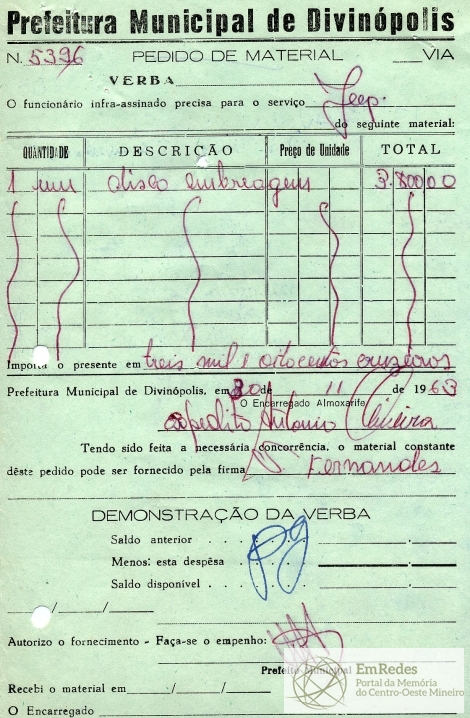 Prefeitura Municipal de Divinópolis
N. 5396 PEDIDO DE MATERIAL ___VIA
VERBA
O funcionário infra-assinado precisa para o serviço Jeep.
do seguinte material:
QUANTIDADE DESCRIÇÃO Preço de Unidade TOTAL
1 um disco embreagem 3.800 00
Importa o presente em treis mil e oitocentos cruzeiros
Prefeitura Municipal de Divinópolis, em 30 de 11 de 1963
O Encarregado Almoxarife
Expedito Antonio
Tendo sido feita a necessária concorrência, o material constante
dêste pedido pode ser fornecido pela firma D. Fernandes
DEMONSTRAÇÃO DA VERBA
Saldo anterior . . . . . .
Menos: esta despêsa . . . .
Saldo disponível . . . . .
pg
___/___/___
Autorizo o fornecimento - Faça-se o empenho:
Prefeito Municipal
Recebi o material em ___/___/___
O Encarregado
EmRedes
Portal da Memória
do Centro-Oeste Mineiro